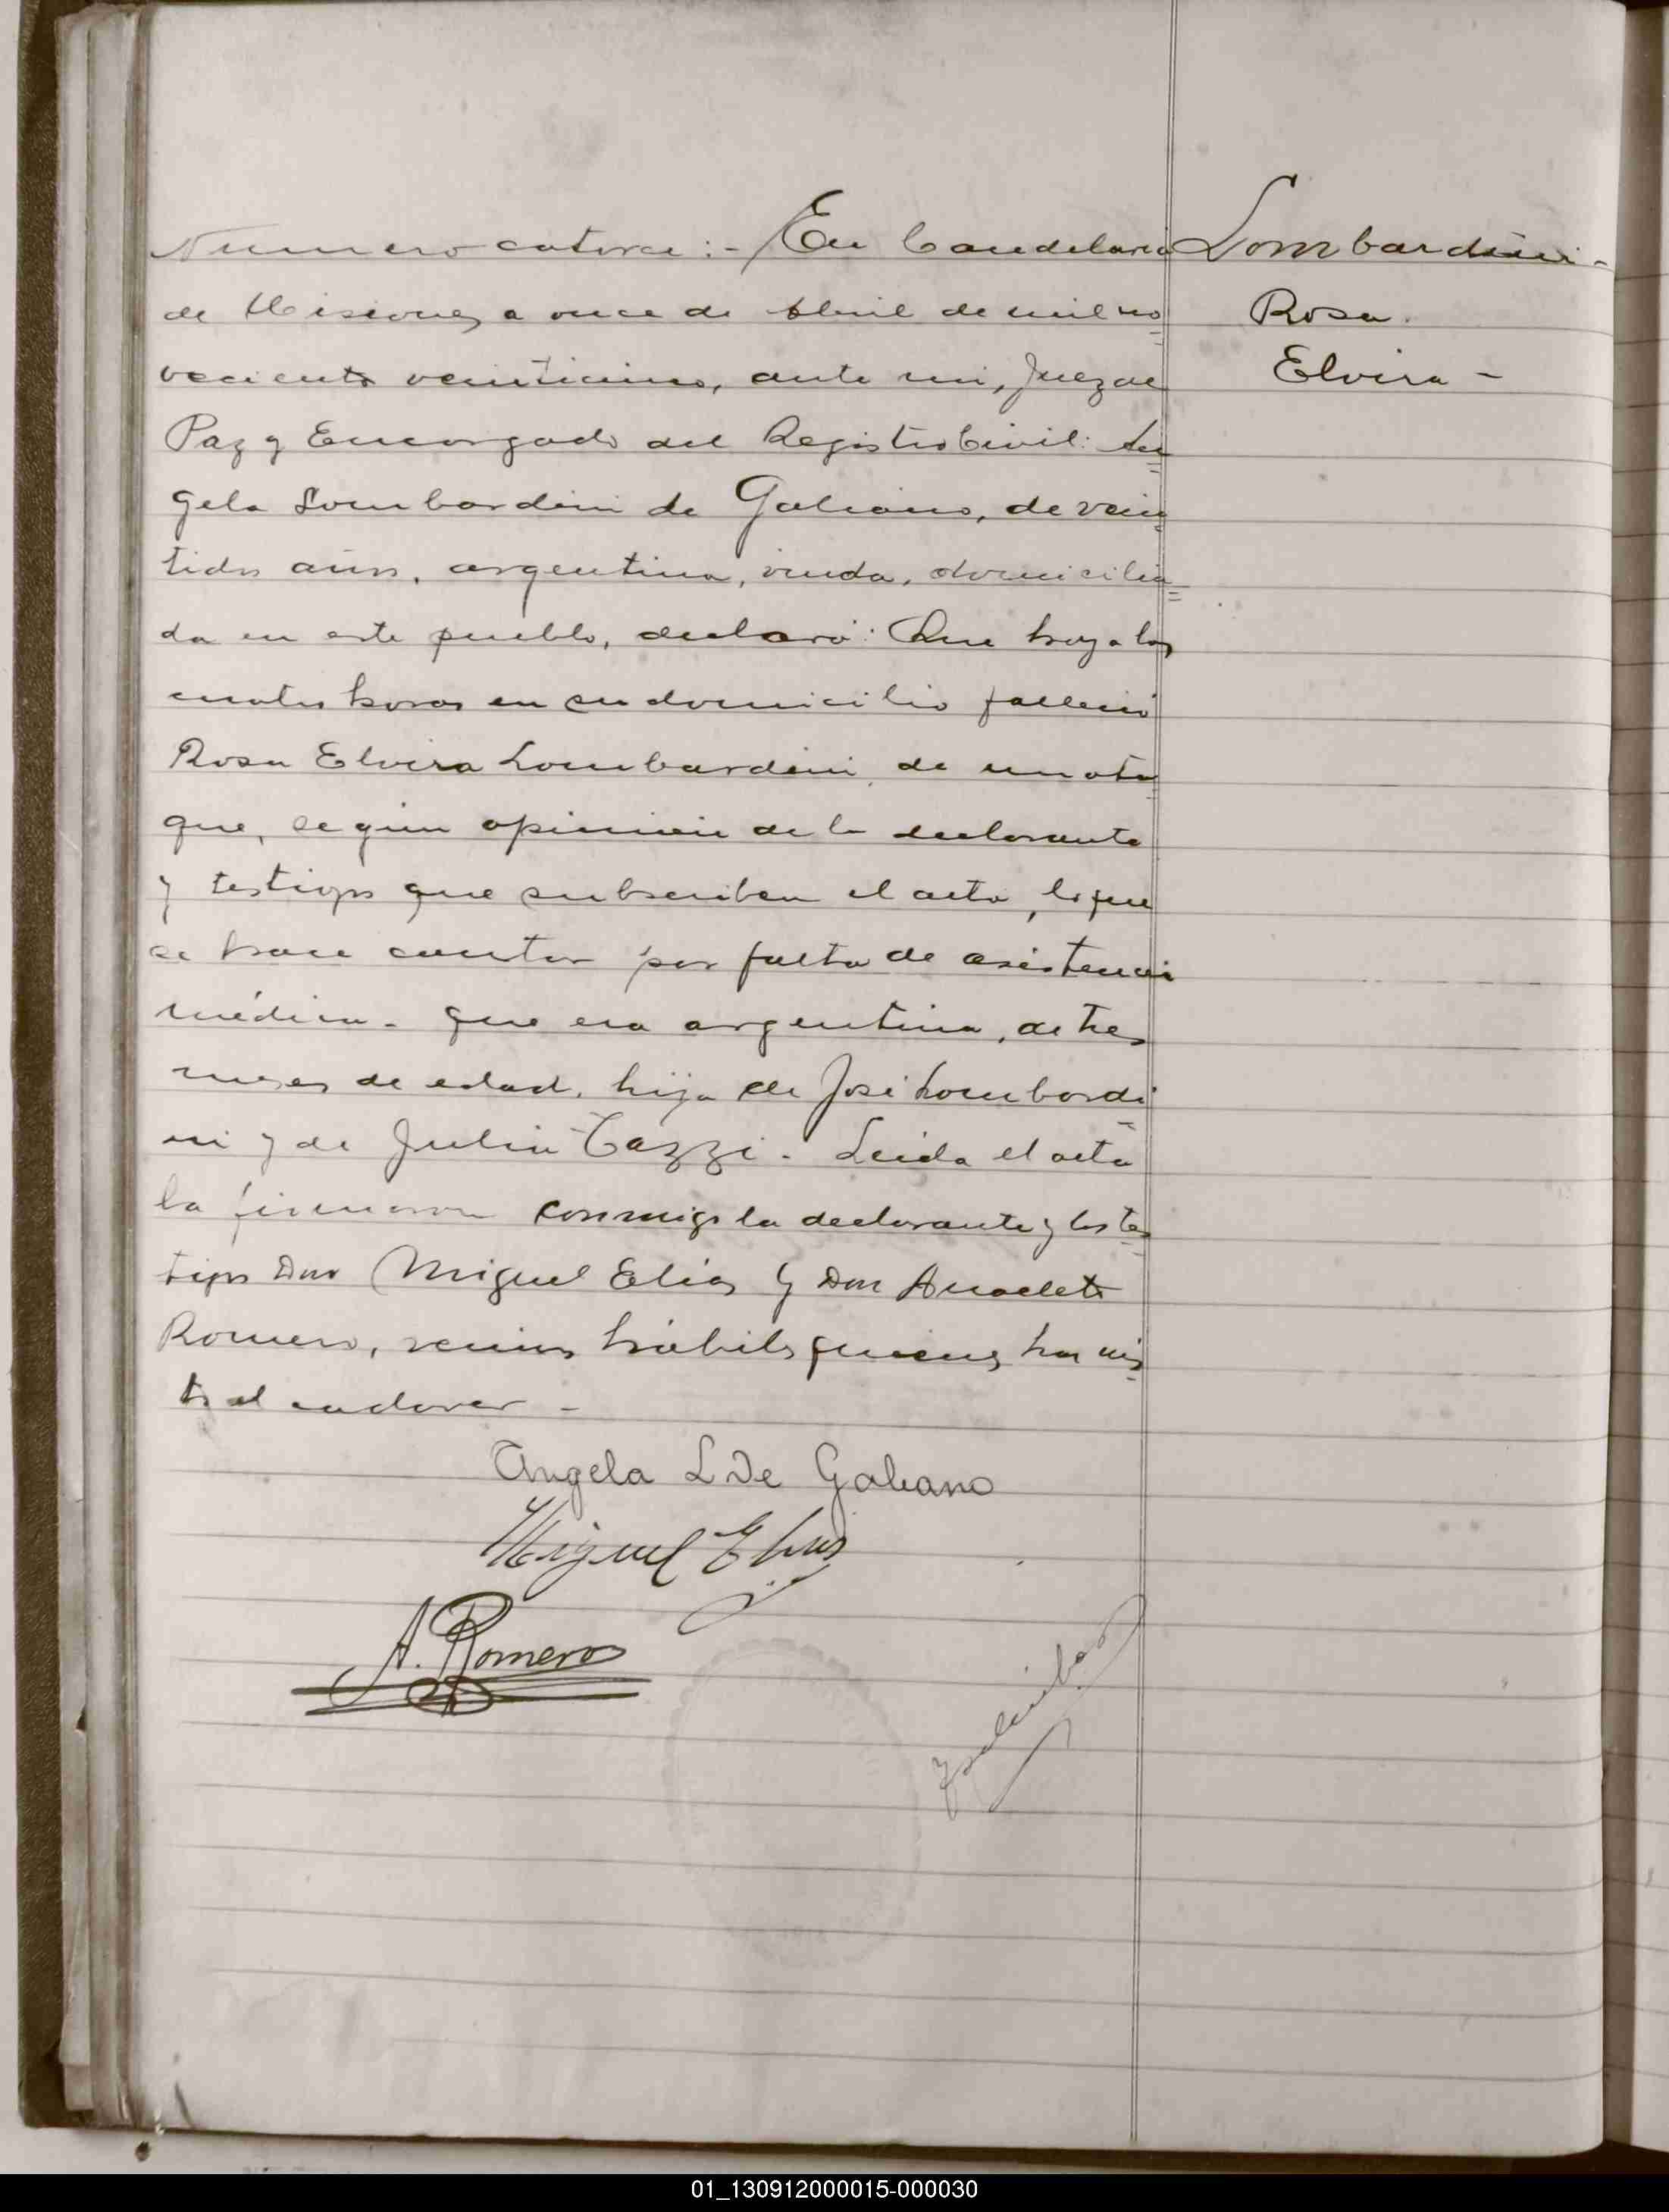 Numero catorce:- En Candelaria
Lombardini-
Rosa.
Elvira-
de Misiones a once de Abril de mil no
vecientos veinticinco, ante mi, Juez de
Paz y Encargado del Registro Civil: An
gela Lombardini de Galiano, de vein
tidos años, argentina, viuda, domicilia
da en este pueblo, declaró: Que hoy a las
cuatro horas en su domicilio falleció
Rosa Elvira Lombardini, de un ata
que, según opinión de la declarante
y testigos que subscriben el acta, lo que
se hace constar por falta de asistencia
médica- que era argentina, de tres
meses de edad, hija de José Lombardi
ni y de Julia Cazzi. Leida el acta
la firmaron conmigo la declarante y los tes
tigos Don Miguel Elias y Don Anacleto
Romero, vecinos hábiles quienes han vis
to el cadaver-
Angela L De Galiano
Miguel Elias
A. Romero
01_130912000015-000030